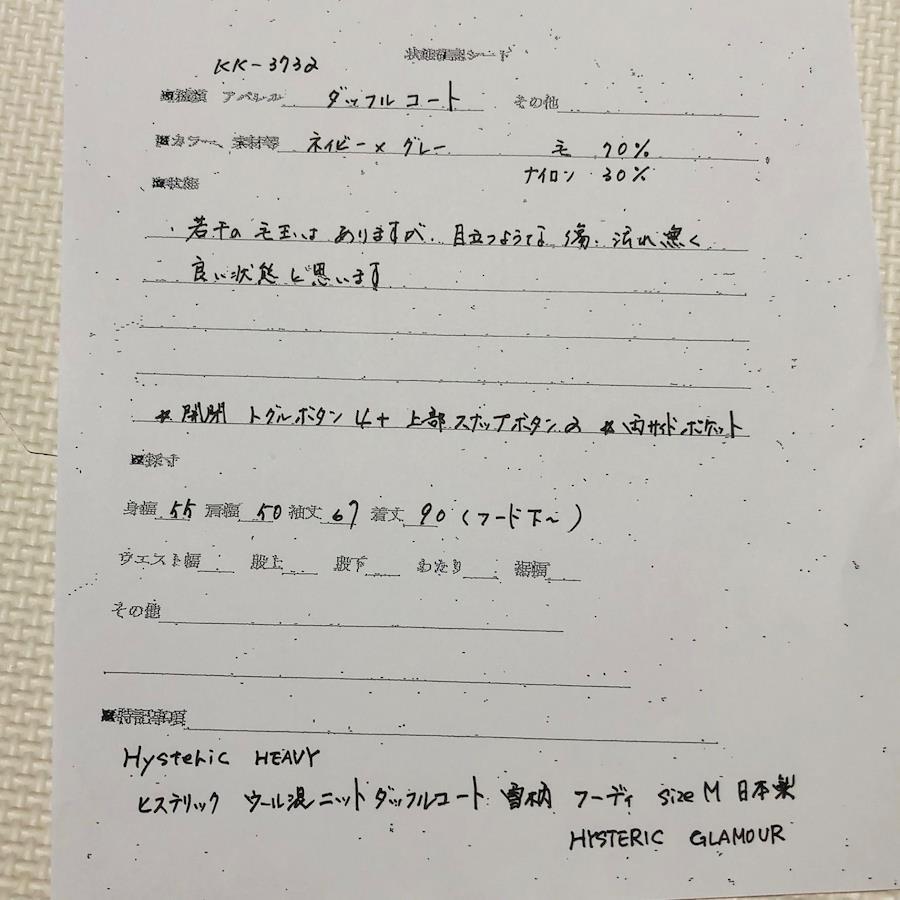 状態確認シート
KK-3732
■種類 アパレル ダッフルコート その他
■カラー、素材等 ネイビー×グレー 毛 70%
ナイロン 30%
■状態
・若干の毛玉はありますが、目立つような傷、汚れ無く
良い状態と思います
※開閉 トグルボタン4+上部スナップボタン2 ※両サイドポケット
■採寸
身幅 55 肩幅 50 袖丈 67 着丈 90(フード下~)
ウエスト幅 股上 股下 わたり 裾幅
その他
■特記事項
Hysteric HEAVY
ヒステリック ウール混ニットダッフルコート 雪柄 フーディ size M 日本製
HYSTERIC GLAMOUR